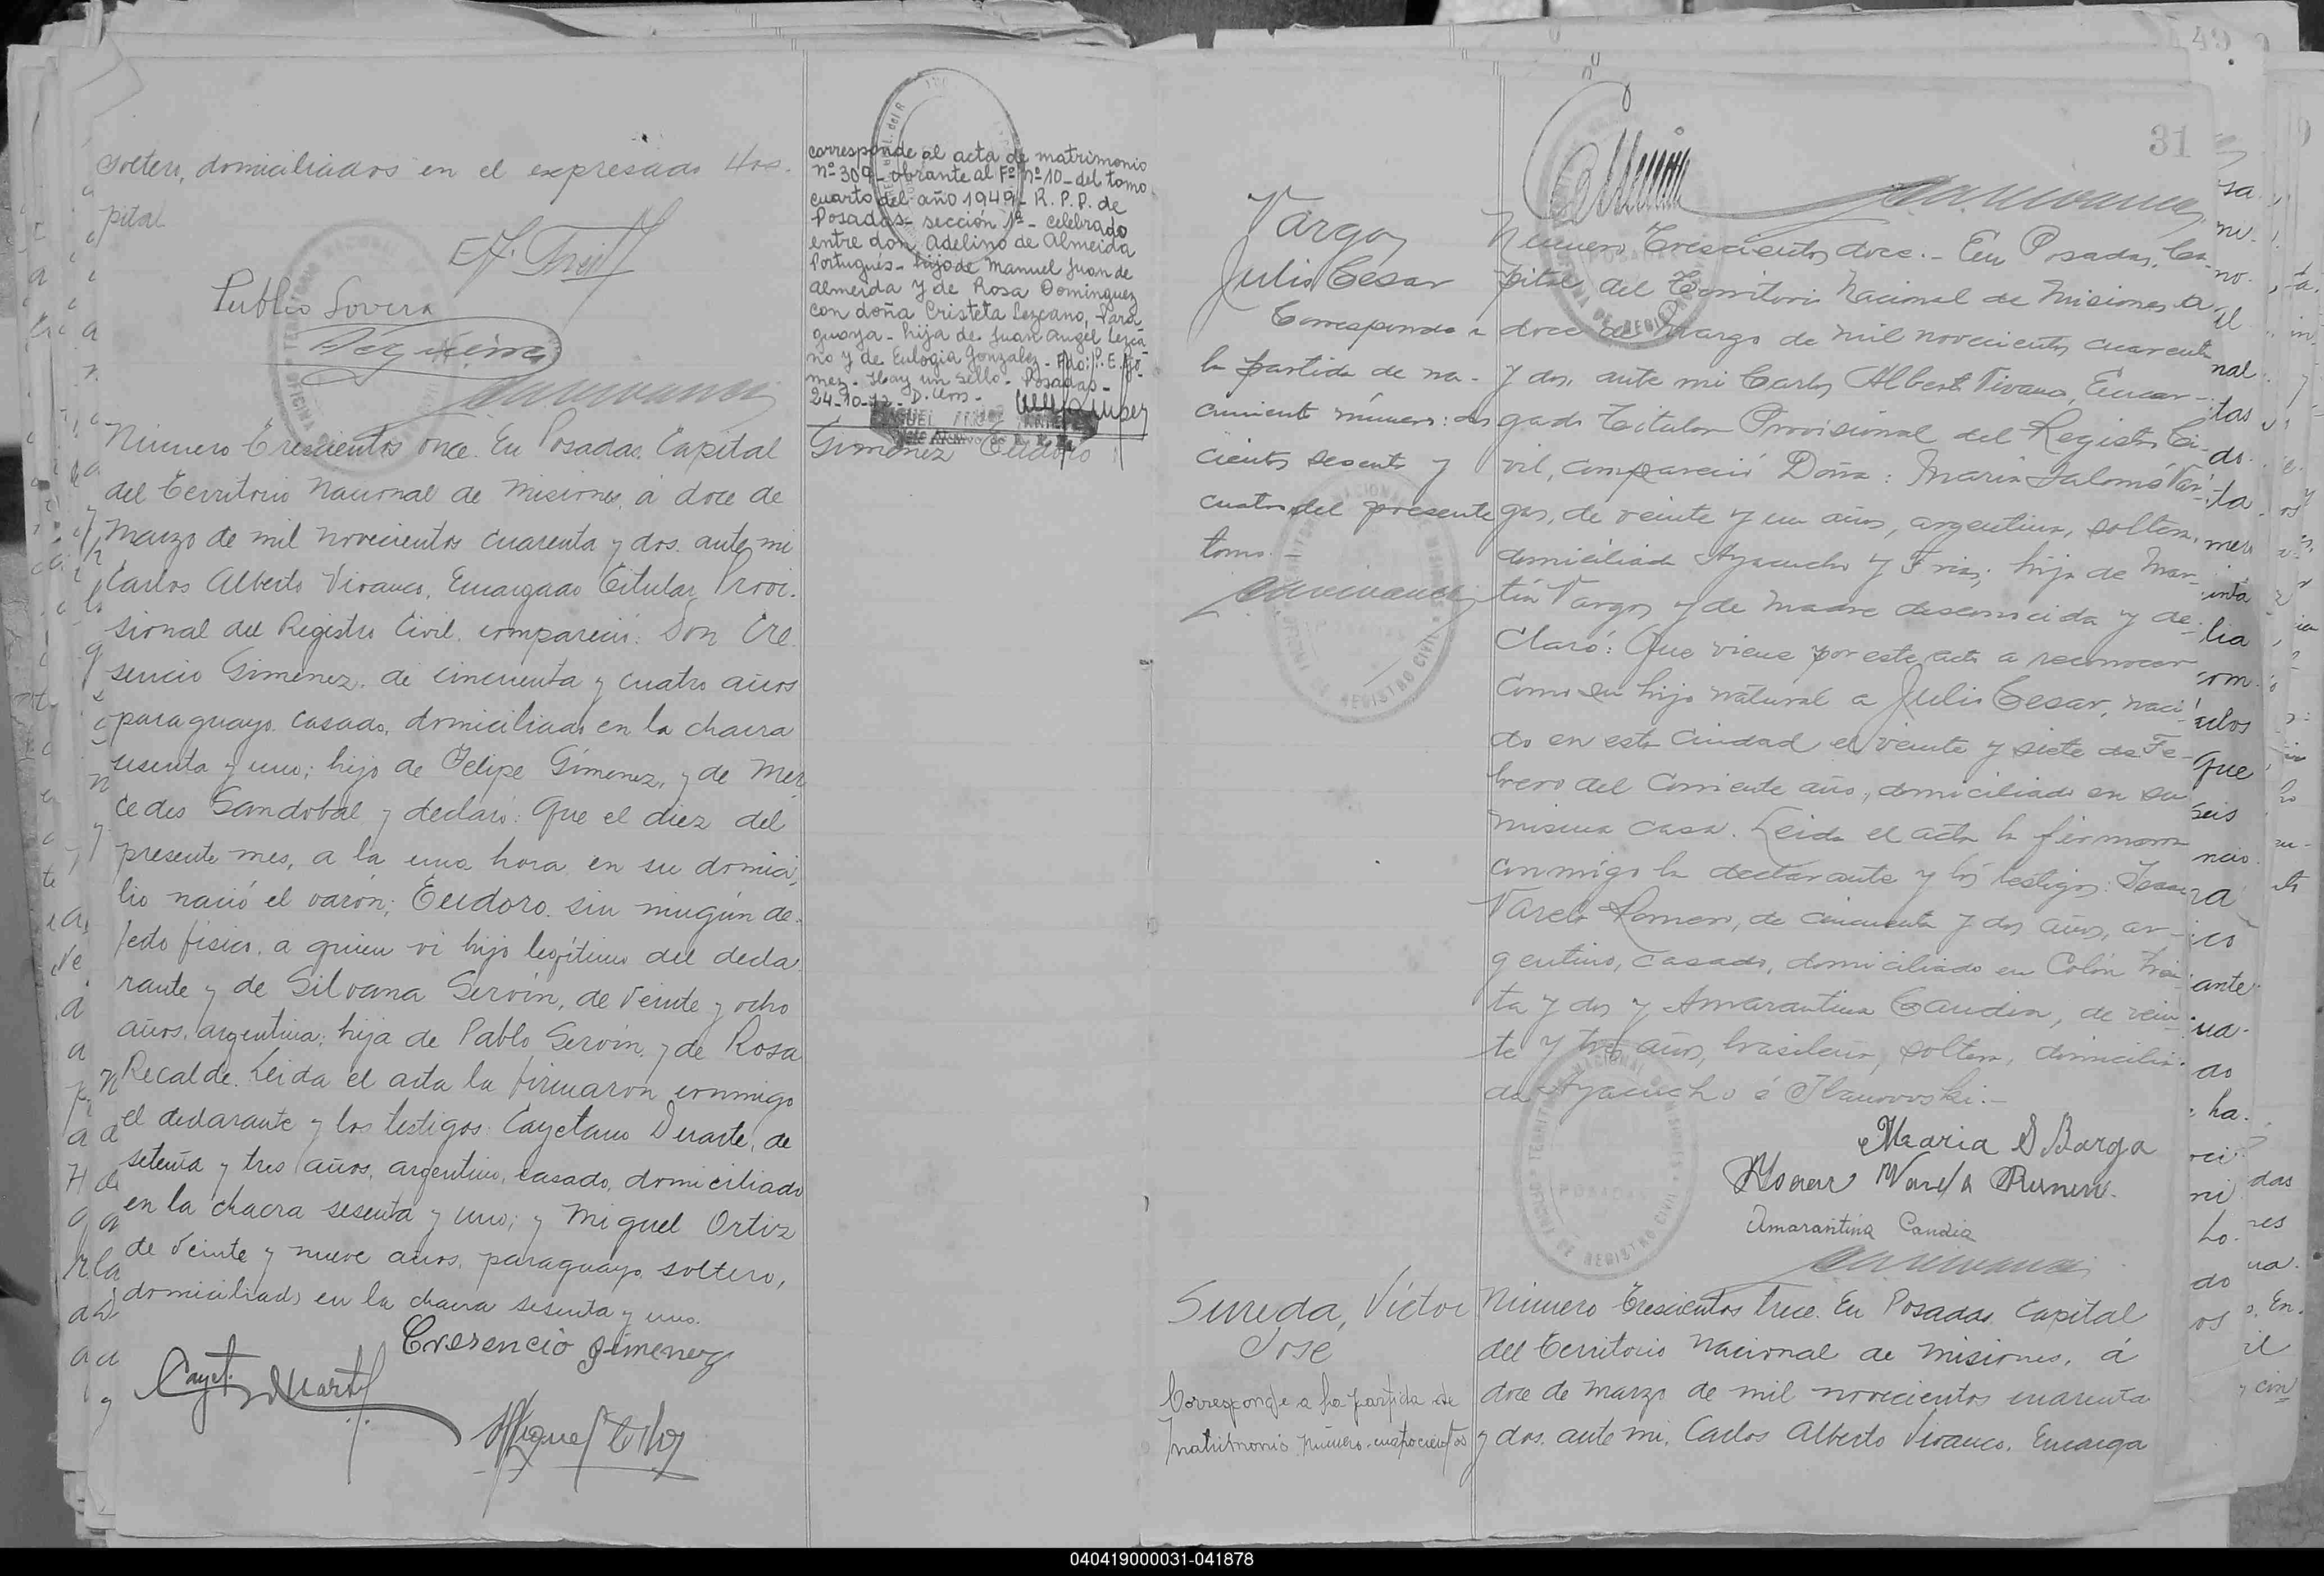 soltero, domiciliados en el expresado Hos.
pital
Publio Lovera
corresponde al acta de matrimonio
nº 309 - obrante al Fº nº 10 - del tomo
cuarto del año 1949 - R. P. P. de
Posadas - sección 1ª - celebrado
entre don Adelino de Almeida
Portugués - hijo de Manuel Juan de
Almeida y de Rosa Dominguez
con doña Cristeta Lezcano, Para
guaya - hija de Juan Angel Lezca
no y de Eulogia Gonzalez - Fdo: P. E. Go-
mez - Hay un sello - Posadas -
24-10-72 -
Gimenez Eudoro
Número Trescientos once. En Posadas Capital
del Territorio Nacional de Misiones, á doce de
Marzo de mil novecientos cuarenta y dos. ante mi
Carlos Alberto Vivanco, Encargado Titular Provi.
sional del Registro Civil. compareció: Don Cre
sencio Gimenez. de cincuenta y cuatro años
paraguayo. casado, domiciliado en la chacra
sesenta y uno; hijo de Felipe Gimenez, y de Mer
cedes Sandobal y declaró: Que el diez del
presente mes, a la una hora en su domici.
lio nació el varón; Eudoro. sin ningún de.
fecto fisico. a quien vi hijo legítimo del decla
rante y de Silvana Servin, de veinte y ocho
años, argentina; hija de Pablo Servin, y de Rosa
Recalde. Leida el acta la firmaron conmigo
el declarante y los testigos: Cayetano Duarte, de
setenta y tres años, argentino, casado, domiciliado
en la chacra sesenta y uno; y Miguel Ortiz
de veinte y nueve años. paraguayo soltero,
domiciliado en la chacra sesenta y uno.
Cresencio Gimenez
Cayet. Duarte
Miguel
31
Vargas
Julio César
Corresponde a
la partida de na-
cimiento número: dos
cientos sesenta y
cuatro del presente
tomo. -
Número Trescientos doce. - En Posadas, Ca-
pital del Territorio Nacional de Misiones a
doce de Marzo de mil novecientos cuarenta
y dos, ante mi Carlos Alberto Vivanco, Encar-
gado Titular Provisional del Registro Ci-
vil, compareció Doña: Maria Salomé Var-
gas, de veinte y un años, argentina, soltera,
domiciliada Ayacucho y Frias; hija de Mar-
tin Vargas y de madre desconocida y de-
claró: Que viene por este acto a reconocer
como su hijo natural a Julio Cesar, naci
do en esta ciudad el veinte y siete de Fe-
brero del corriente año, domiciliado en su
misma casa. Leida el acta la firmaron
conmigo la declarante y los testigos:
Varela Romero, de cincuenta y dos años, ar-
gentino, casado, domiciliado en Colón trein
ta y dos y Amarantina Candia, de vein-
te y tres años, brasilera, soltera, domicilia-
da Ayacucho é
Maria S Barga
Amarantina Candia
Sureda, Víctor
José
Corresponde a la partida de
matrimonio número cuatrocientos
Número Trescientos trece. En Posadas Capital
del Territorio Nacional de Misiones, á
doce de Marzo de mil novecientos cuarenta
y dos. ante mi, Carlos Alberto Vivanco. Encarga
040419000031-041878